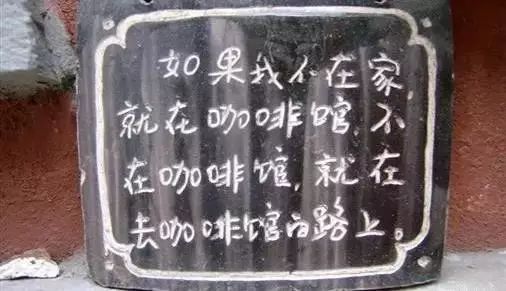 如果我不在家,
就在咖啡馆,不
在咖啡馆,就在
去咖啡馆的路上。